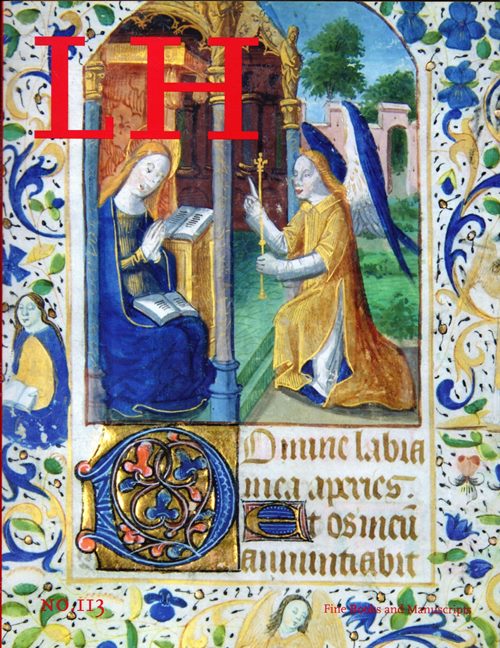 LH
Domine labia
mea aperies.
Et os meū
annuntiabit
NO. 113
Fine Books and Manuscripts